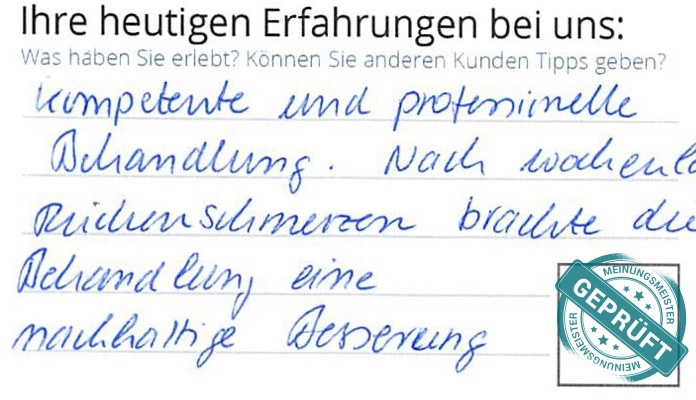 Ihre heutigen Erfahrungen bei uns:
Was haben Sie erlebt? Können Sie anderen Kunden Tipps geben?
kompetente und professionelle
Behandlung. Nach wochenla
Rückenschmerzen brachte die
Behandlung eine
nachhaltige Besserung
MEINUNGSMEISTER
GEPRÜFT
MEINUNGSMEISTER